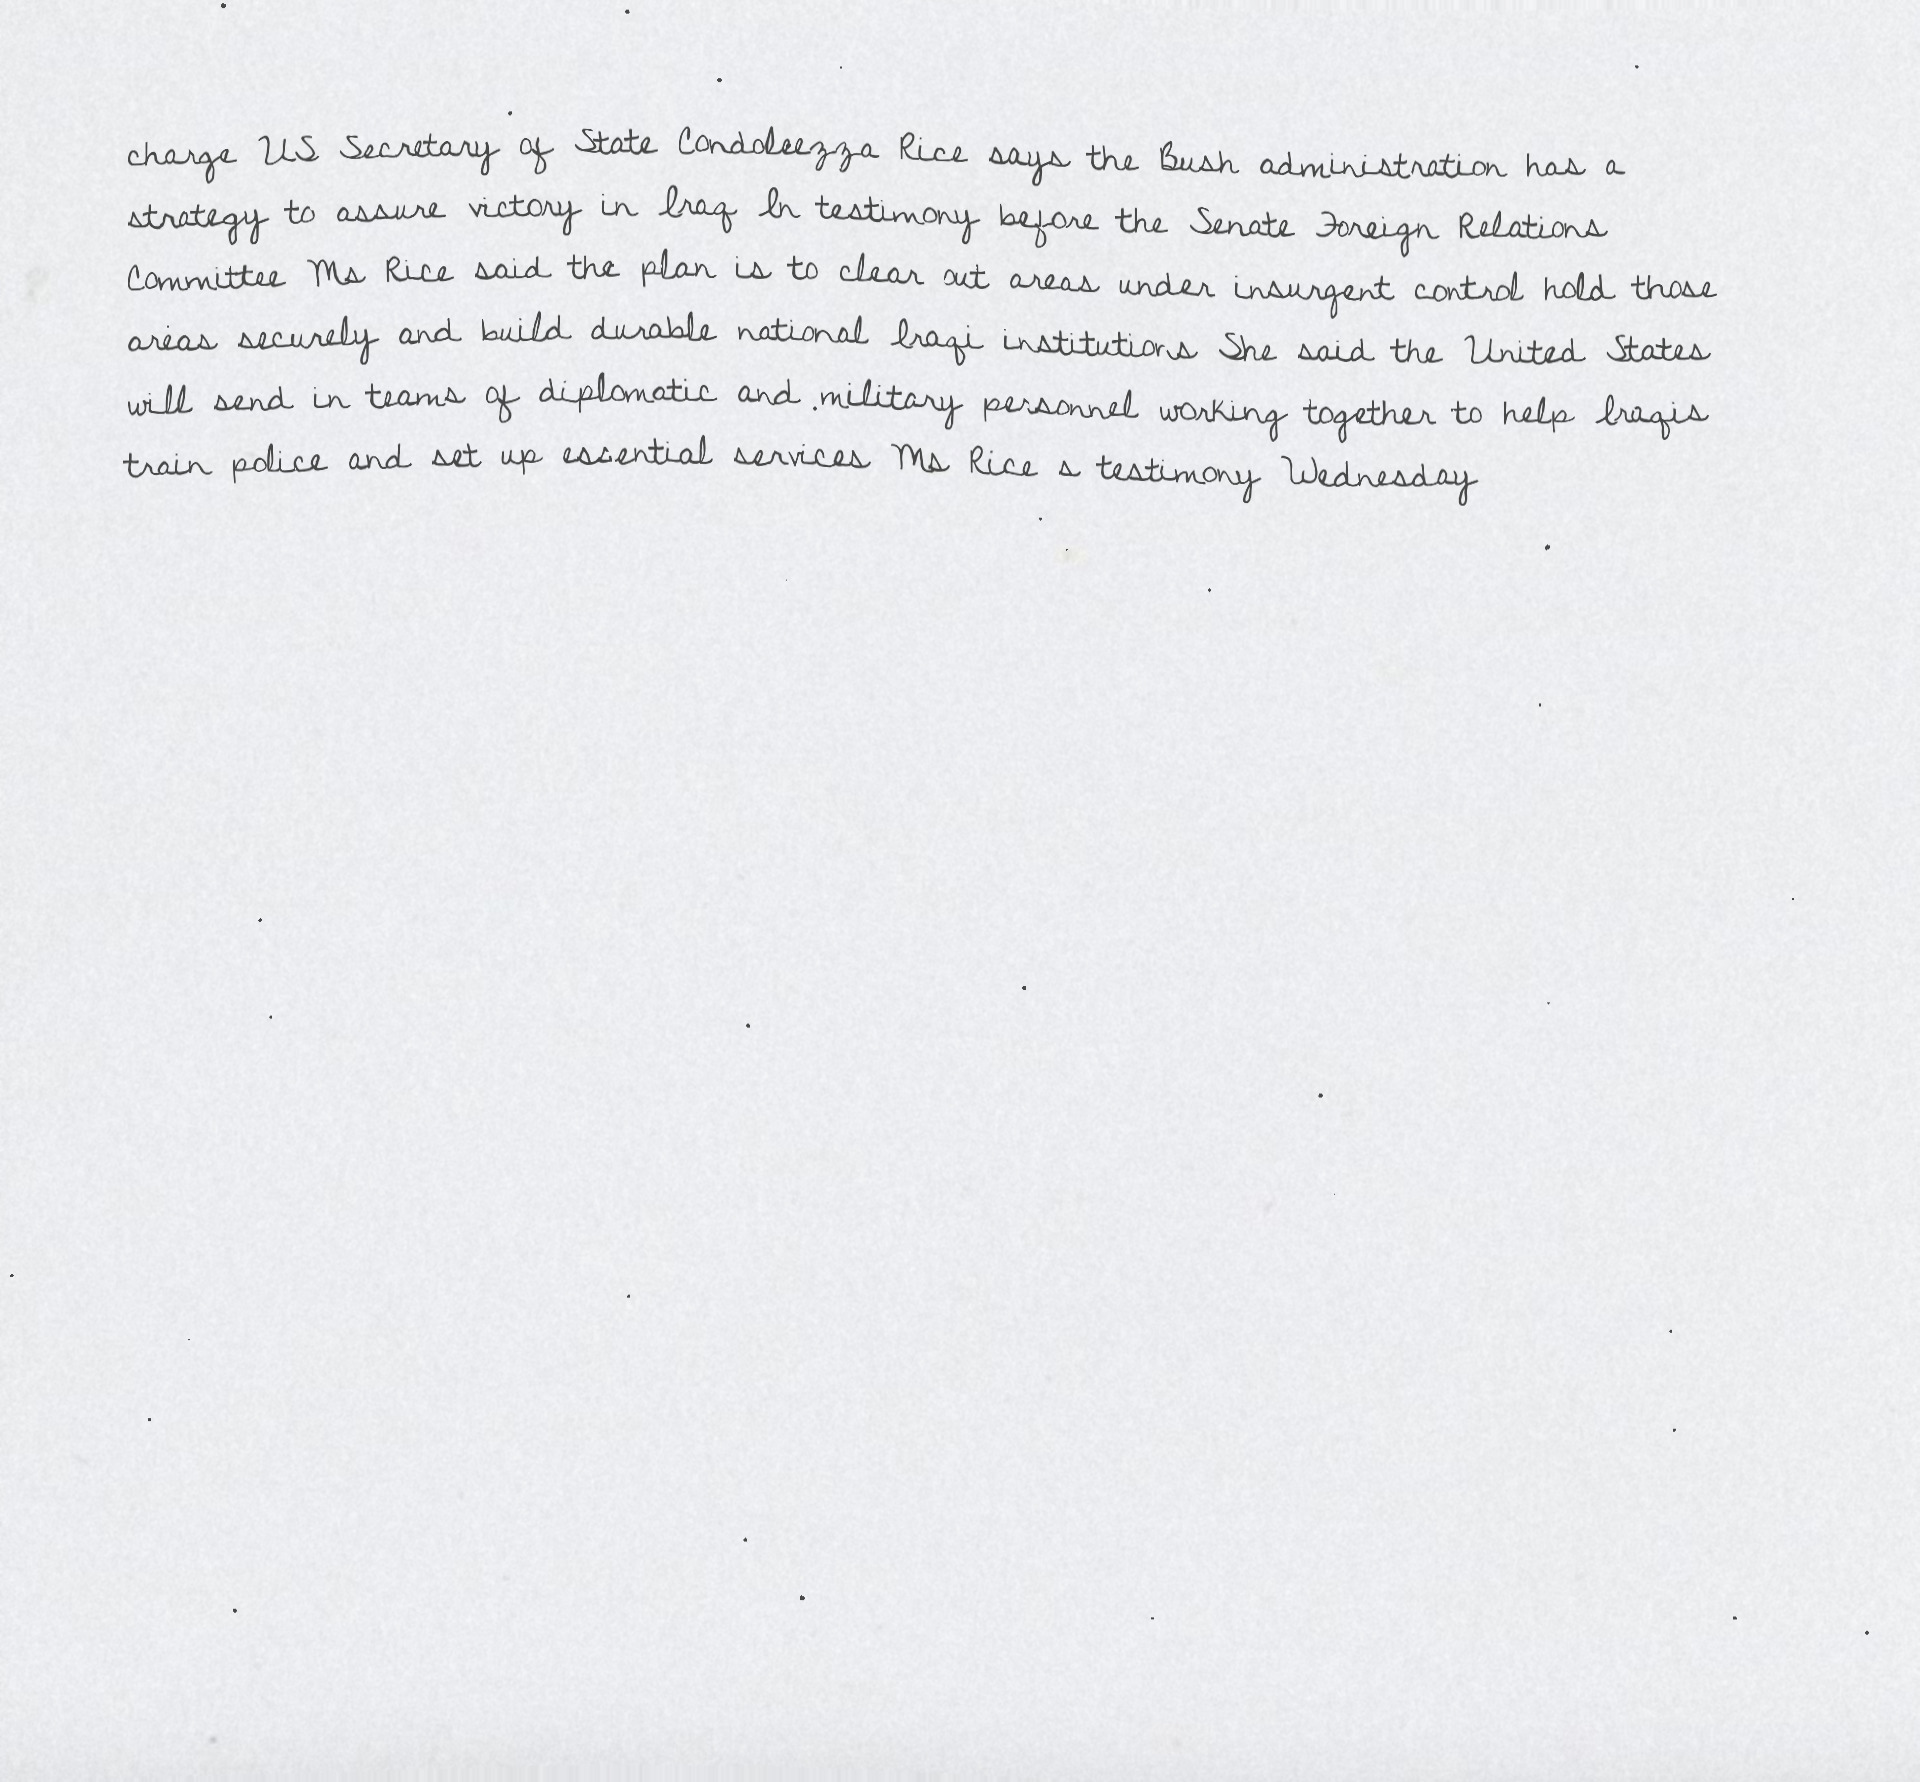 charge US Secretary of State Condoleezza Rice says the Bush administration has a
strategy to assure victory in Iraq In testimony before the Senate Foreign Relations
Committee Ms Rice said the plan is to clear out areas under insurgent control hold those
areas securely and build durable national Iraqi institutions She said the United States
will send in teams of diplomatic and military personnel working together to help Iraqis
train police and set up essential services Ms Rice s testimony Wednesday